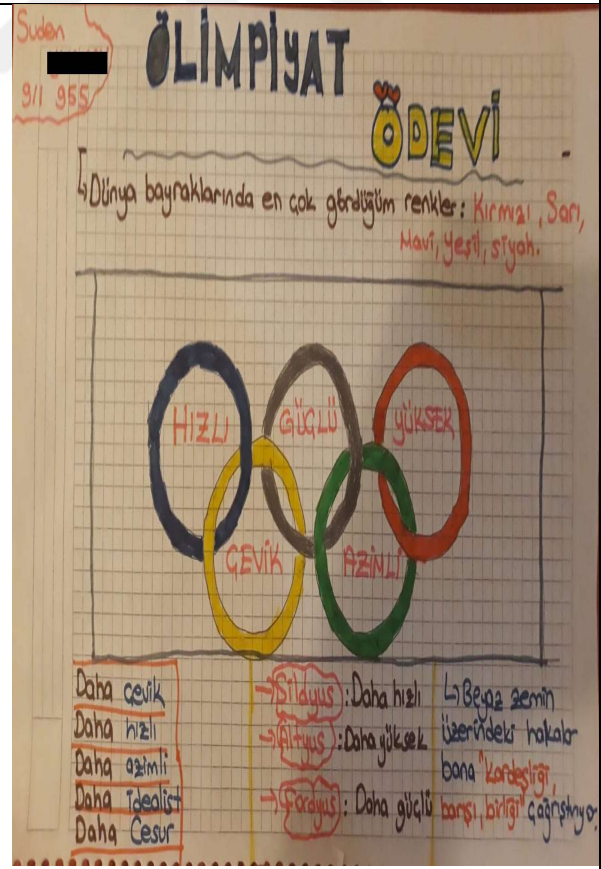 Suden
9/I 955
ÖLİMPİYAT
ÖDEVİ
Dünya bayraklarında en çok gördüğüm renkler: Kırmızı, Sarı,
Mavi, Yeşil, siyah.
HIZLI
GÜÇLÜ
YÜKSEK
ÇEVİK
AZİMLİ
Daha çevik
Daha hızlı
Daha azimli
Daha idealist
Daha Cesur
→ Sildyus : Daha hızlı
→ Altyus : Daha yüksek
→ Fordyus : Daha güçlü
Beyaz zemin
üzerindeki halkalar
bana "kardeşliği,
barışı, birliği" çağrıştırıyor.